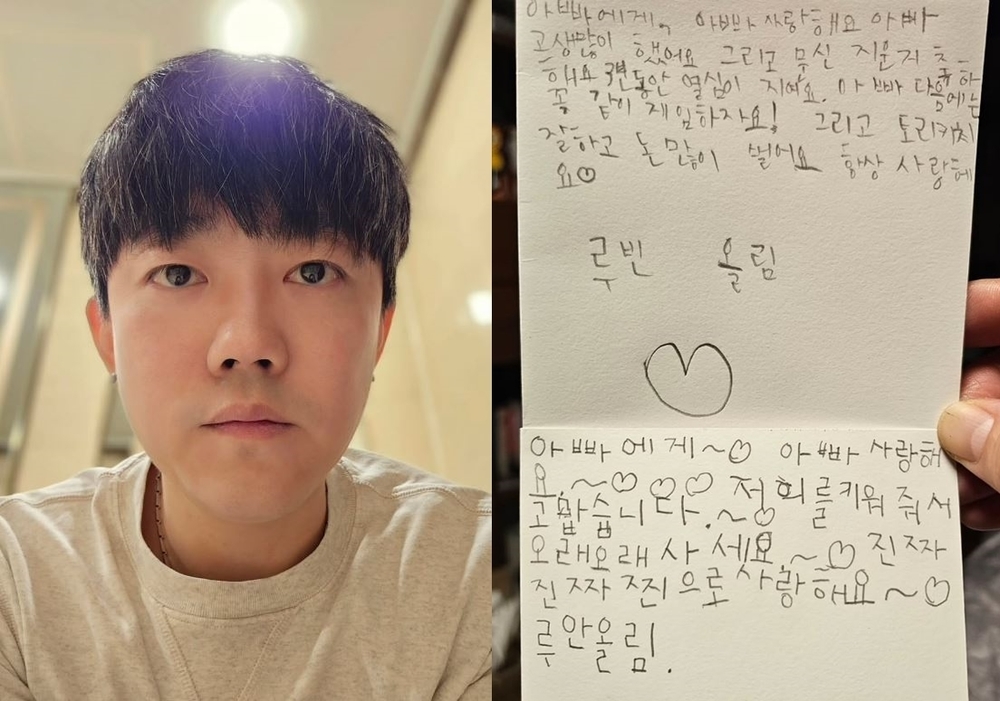 아빠에게, 아빠 사랑해요 아빠
고생많이 했었어요 그리고 무신 지운지 추
해요 3년동안 열심이 지여요. 아빠 다음에는
꼭 같이 게임하자요! 그리고 토리카치
잘하고 돈많이 벌어요 항상 사랑해
요♡
루빈 올림
아빠에게~♡ 아빠 사랑해
요.~♡♡♡ 정희를키워줘서
고맙습니다.~♡
오래오래 사세요.~♡ 진짜
진짜 찐으로 사랑해요~♡
루안올림.